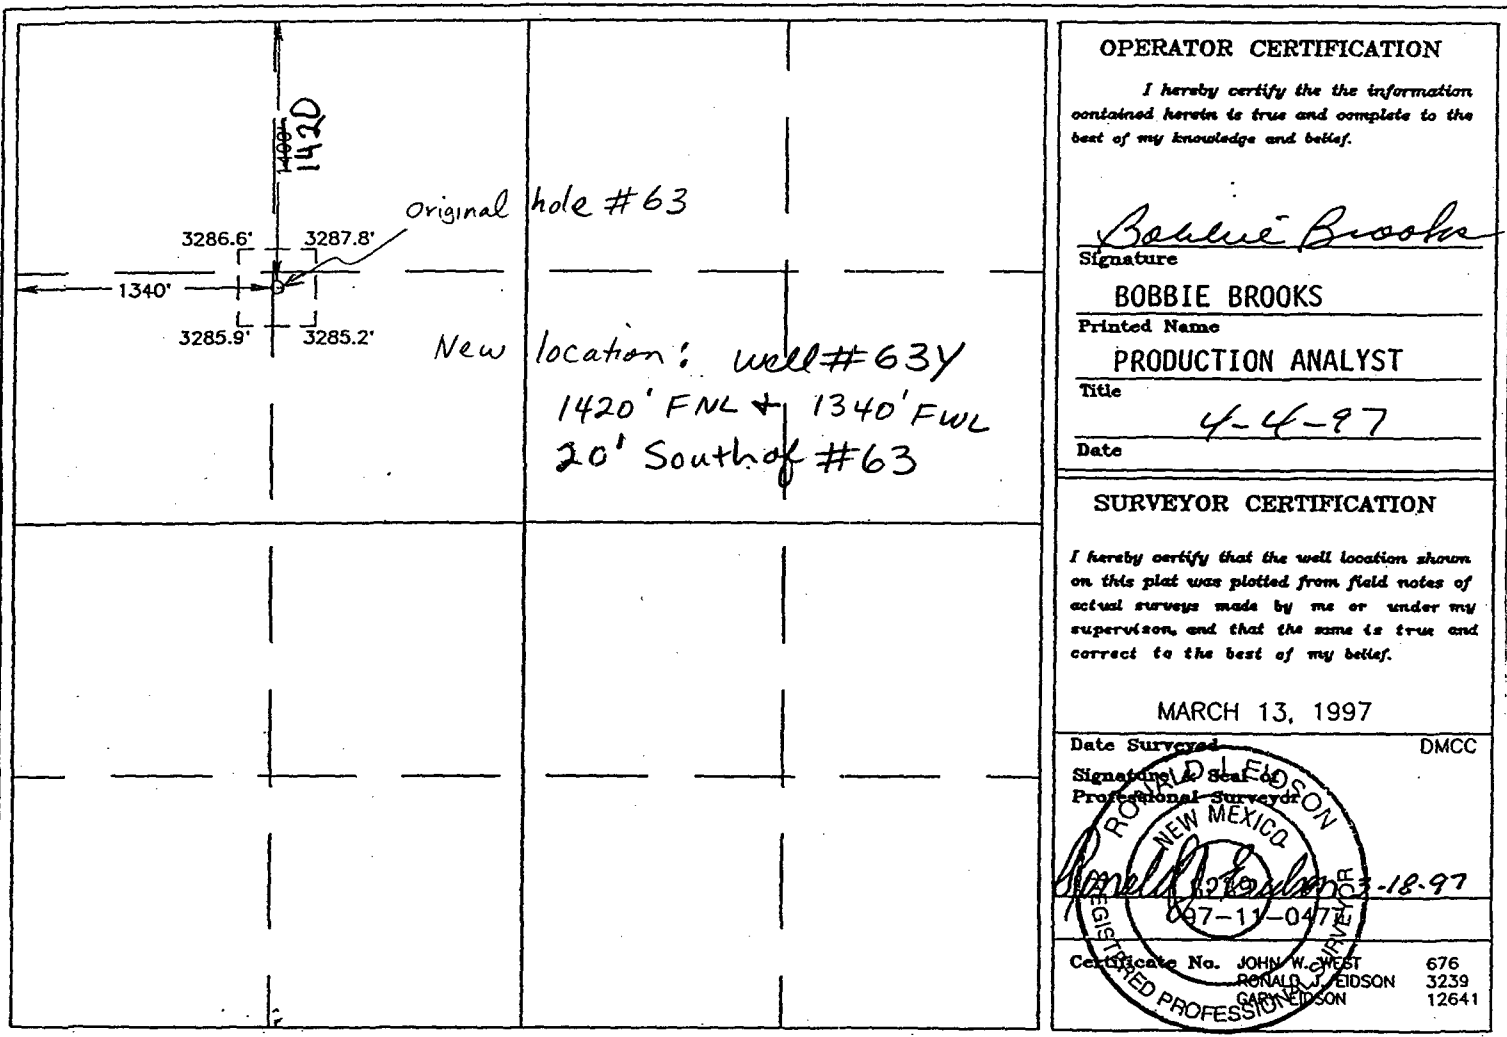 1400'
1420
Original hole #63
3286.6' 3287.8'
1340'
3285.9' 3285.2'
New location: well #63Y
1420' FNL & 1340' FWL
20' South of #63
OPERATOR CERTIFICATION
I hereby certify the the information
contained herein is true and complete to the
best of my knowledge and belief.
Bobbie Brooks
Signature
BOBBIE BROOKS
Printed Name
PRODUCTION ANALYST
Title
4-4-97
Date
SURVEYOR CERTIFICATION
I hereby certify that the well location shown
on this plat was plotted from field notes of
actual surveys made by me or under my
supervison, and that the same is true and
correct to the best of my belief.
MARCH 13, 1997
Date Surveyed DMCC
Signature & Seal of
Professional Surveyor
RONALD J. EIDSON
NEW MEXICO
REGISTERED PROFESSIONAL SURVEYOR
Ronald J. Eidson 3-18-97
97-11-0477
Certificate No. JOHN W. WEST 676
RONALD J. EIDSON 3239
GARY EIDSON 12641